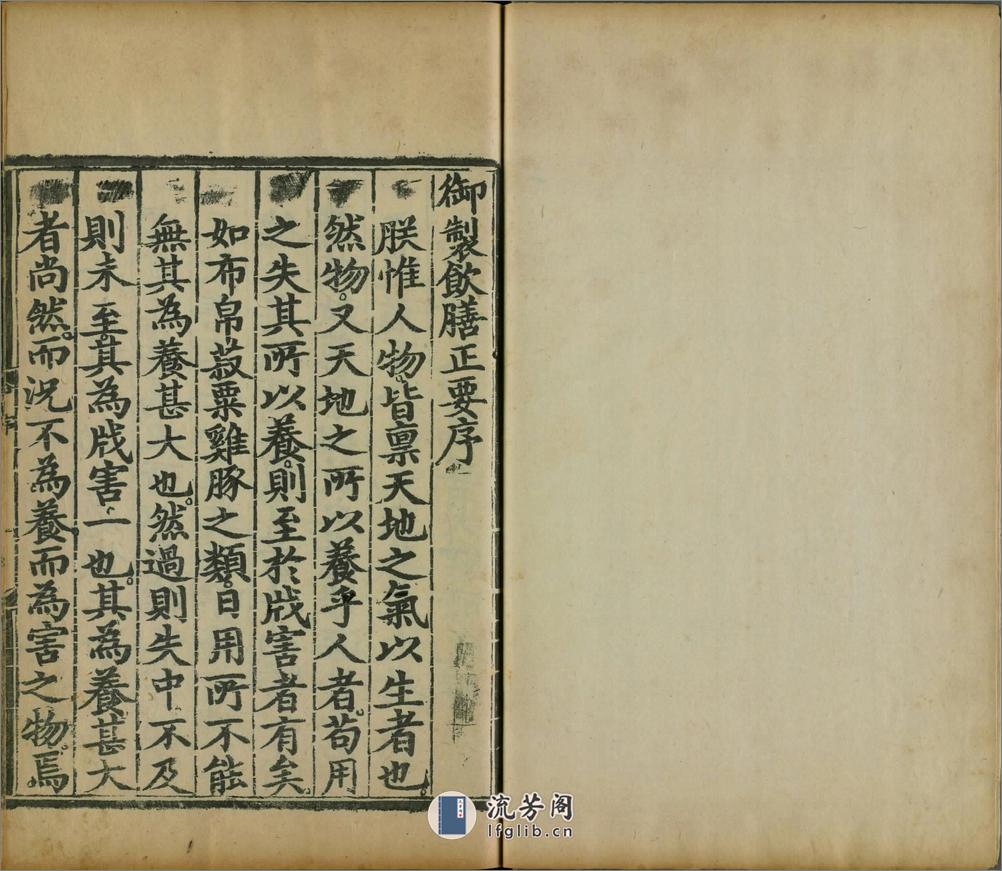 御製飲膳正要序
朕惟人物。皆禀天地之氣以生者也。
然物。又天地之所以養乎人者。苟用
之失其所以養。則至於戕害者有矣
如布帛菽粟雞豚之類。日用所不能
無其為養甚大也。然過則失中不及
則未至。其為戕害一也。其為養甚大
者尚然。而况不為養而為害之物。焉
流芳阁
lfglib.cn